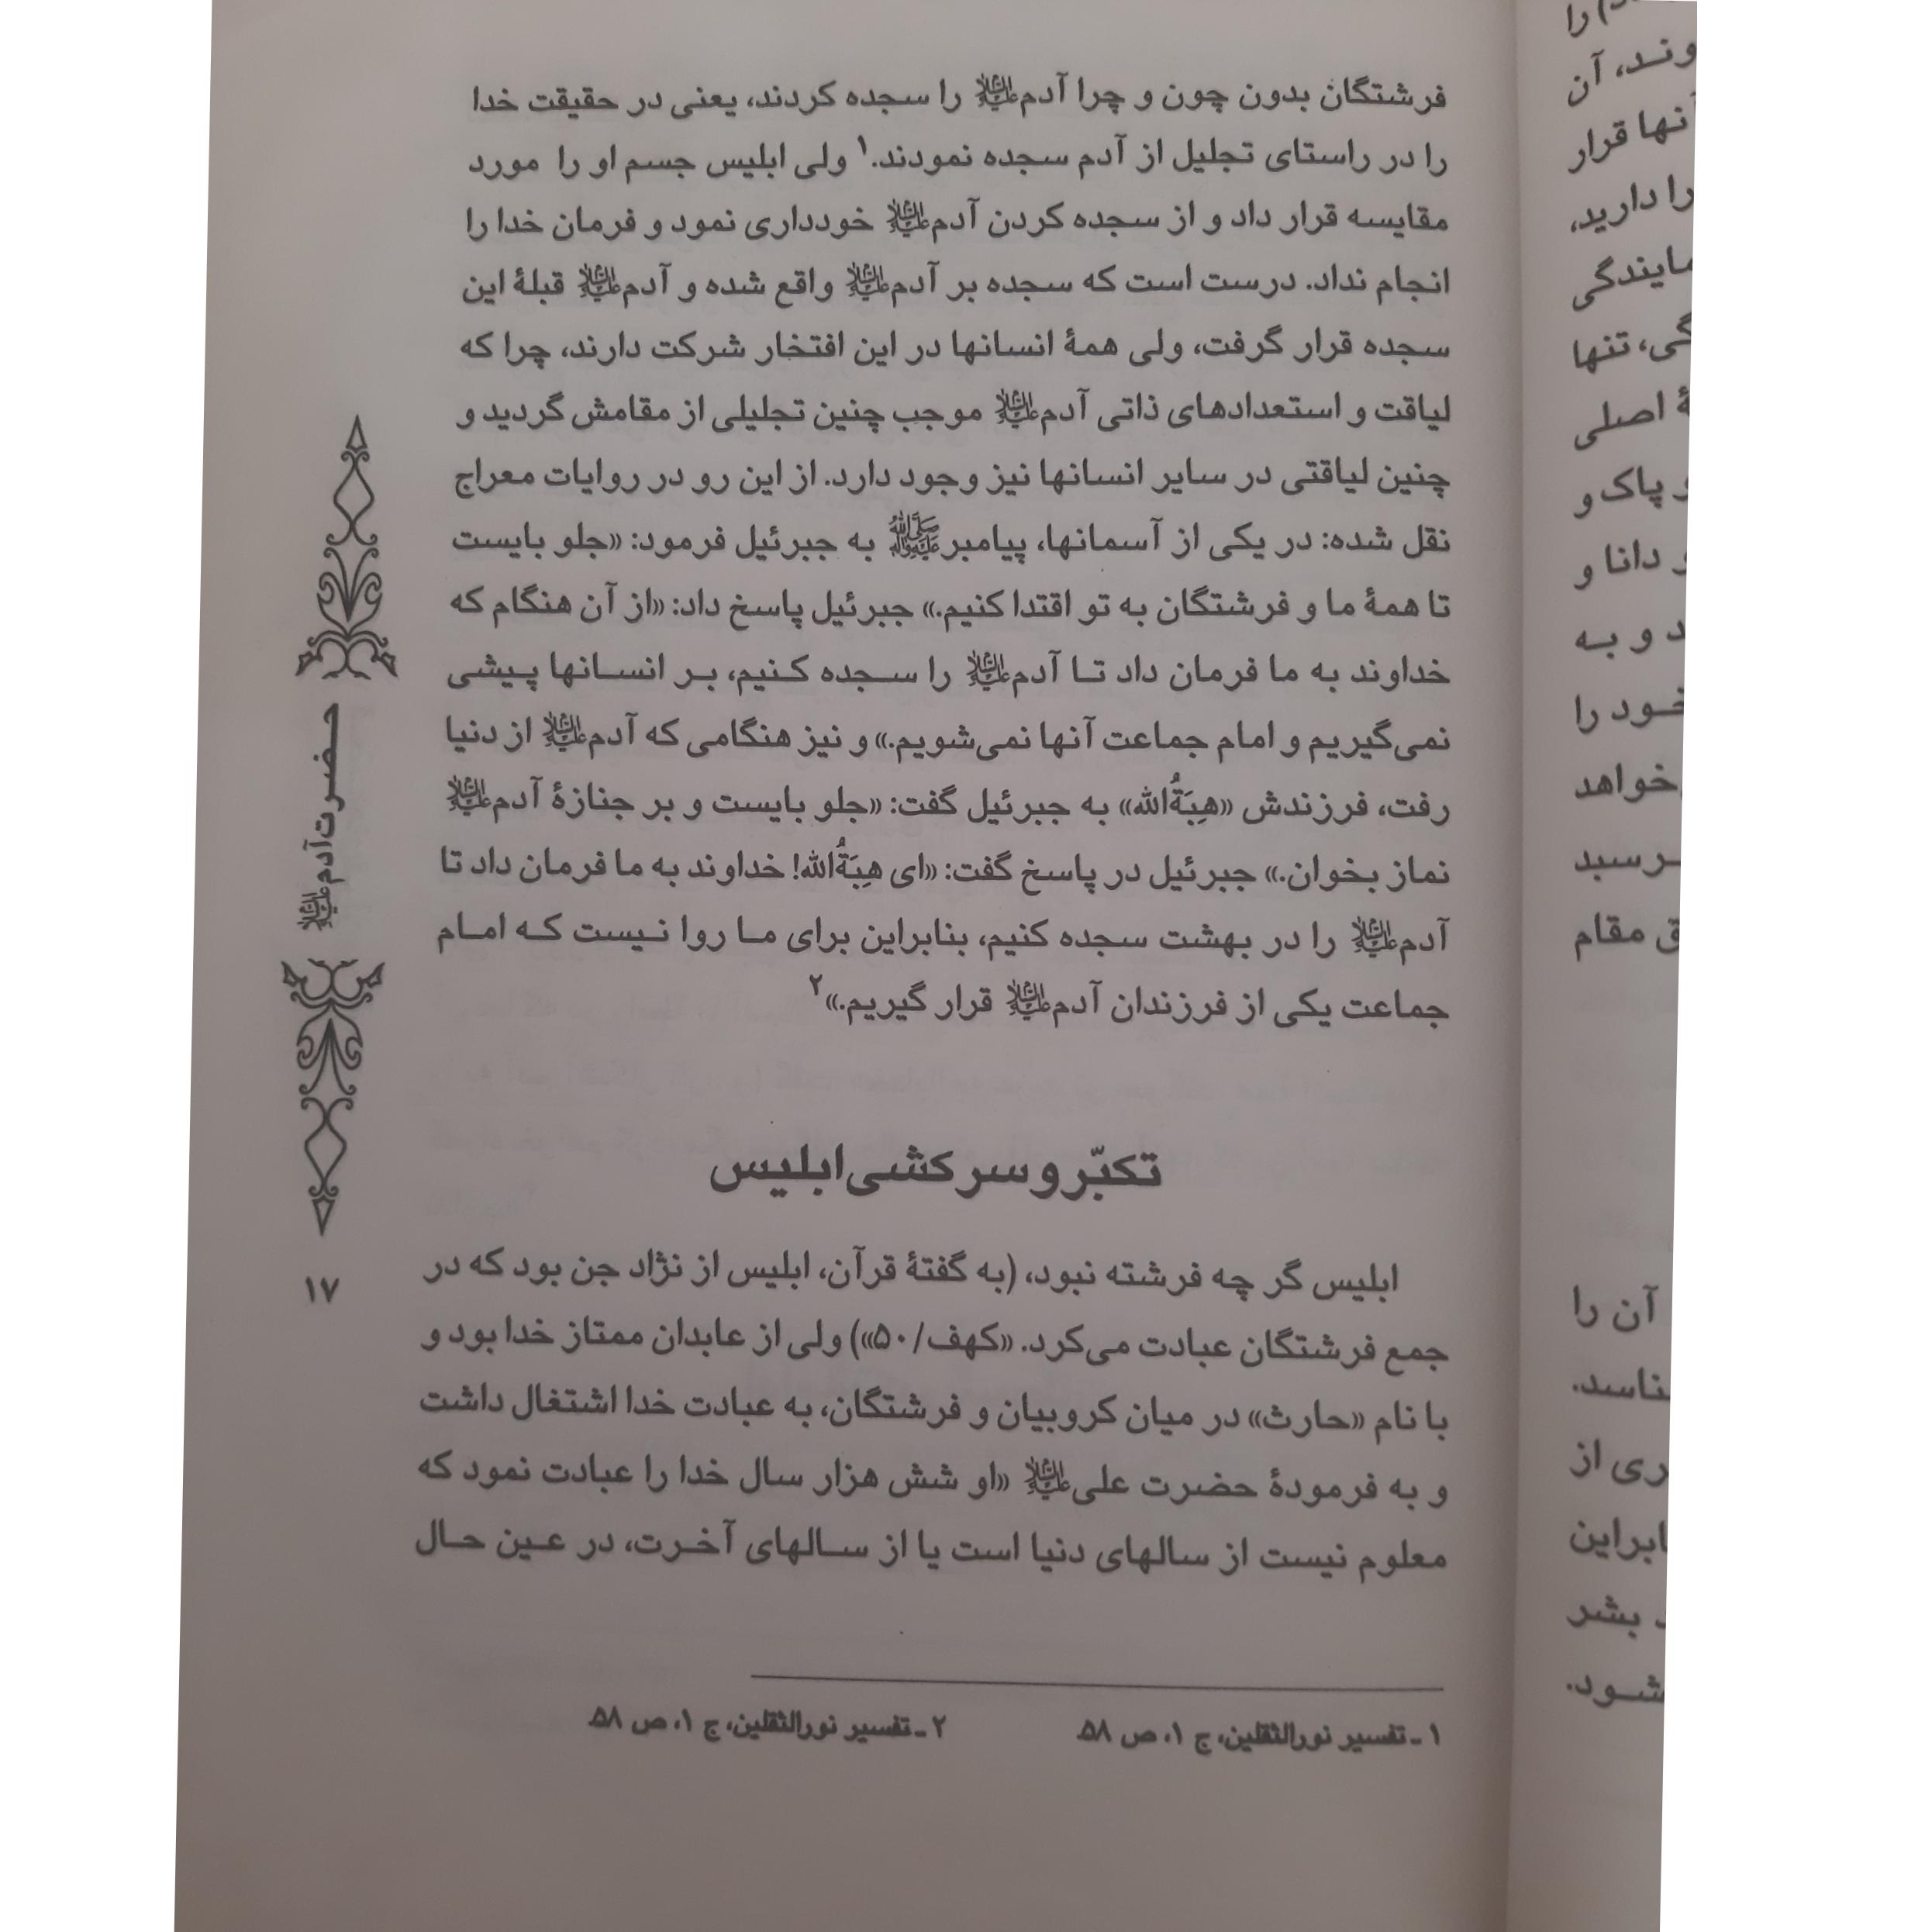 فرشتگان بدون چون و چرا آدم علیه‌السلام را سجده کردند، یعنی در حقیقت خدا
را در راستای تجلیل از آدم سجده نمودند.۱ ولی ابلیس جسم او را مورد
مقایسه قرار داد و از سجده کردن آدم علیه‌السلام خودداری نمود و فرمان خدا را
انجام نداد. درست است که سجده بر آدم علیه‌السلام واقع شده و آدم علیه‌السلام قبلهٔ این
سجده قرار گرفت، ولی همهٔ انسانها در این افتخار شرکت دارند، چرا که
لیاقت و استعدادهای ذاتی آدم علیه‌السلام موجب چنین تجلیلی از مقامش گردید و
چنین لیاقتی در سایر انسانها نیز وجود دارد. از این رو در روایات معراج
نقل شده: در یکی از آسمانها، پیامبر ﷺ به جبرئیل فرمود: «جلو بایست
تا همهٔ ما و فرشتگان به تو اقتدا کنیم.» جبرئیل پاسخ داد: «از آن هنگام که
خداوند به ما فرمان داد تا آدم علیه‌السلام را سجده کنیم، بر انسانها پیشی
نمی‌گیریم و امام جماعت آنها نمی‌شویم.» و نیز هنگامی که آدم علیه‌السلام از دنیا
رفت، فرزندش «هِبَةُالله» به جبرئیل گفت: «جلو بایست و بر جنازهٔ آدم علیه‌السلام
نماز بخوان.» جبرئیل در پاسخ گفت: «ای هِبَةُالله! خداوند به ما فرمان داد تا
آدم علیه‌السلام را در بهشت سجده کنیم، بنابراین برای ما روا نیست که امام
جماعت یکی از فرزندان آدم علیه‌السلام قرار گیریم.»۲
تکبّر و سرکشی ابلیس
ابلیس گر چه فرشته نبود، (به گفتهٔ قرآن، ابلیس از نژاد جن بود که در
جمع فرشتگان عبادت می‌کرد. «کهف/۵۰») ولی از عابدان ممتاز خدا بود و
با نام «حارث» در میان کروبیان و فرشتگان، به عبادت خدا اشتغال داشت
و به فرمودهٔ حضرت علی علیه‌السلام «او شش هزار سال خدا را عبادت نمود که
معلوم نیست از سالهای دنیا است یا از سالهای آخرت، در عین حال
۱ ـ تفسیر نورالثقلین، ج ۱، ص ۵۸
۲ ـ تفسیر نورالثقلین، ج ۱، ص ۵۸
حضرت آدم علیه‌السلام
۱۷
را
آن
قرار
را دارید،
تنها
اصلی
پاک و
دانا و
و به
خود را
مقام
آن را
از
بشر